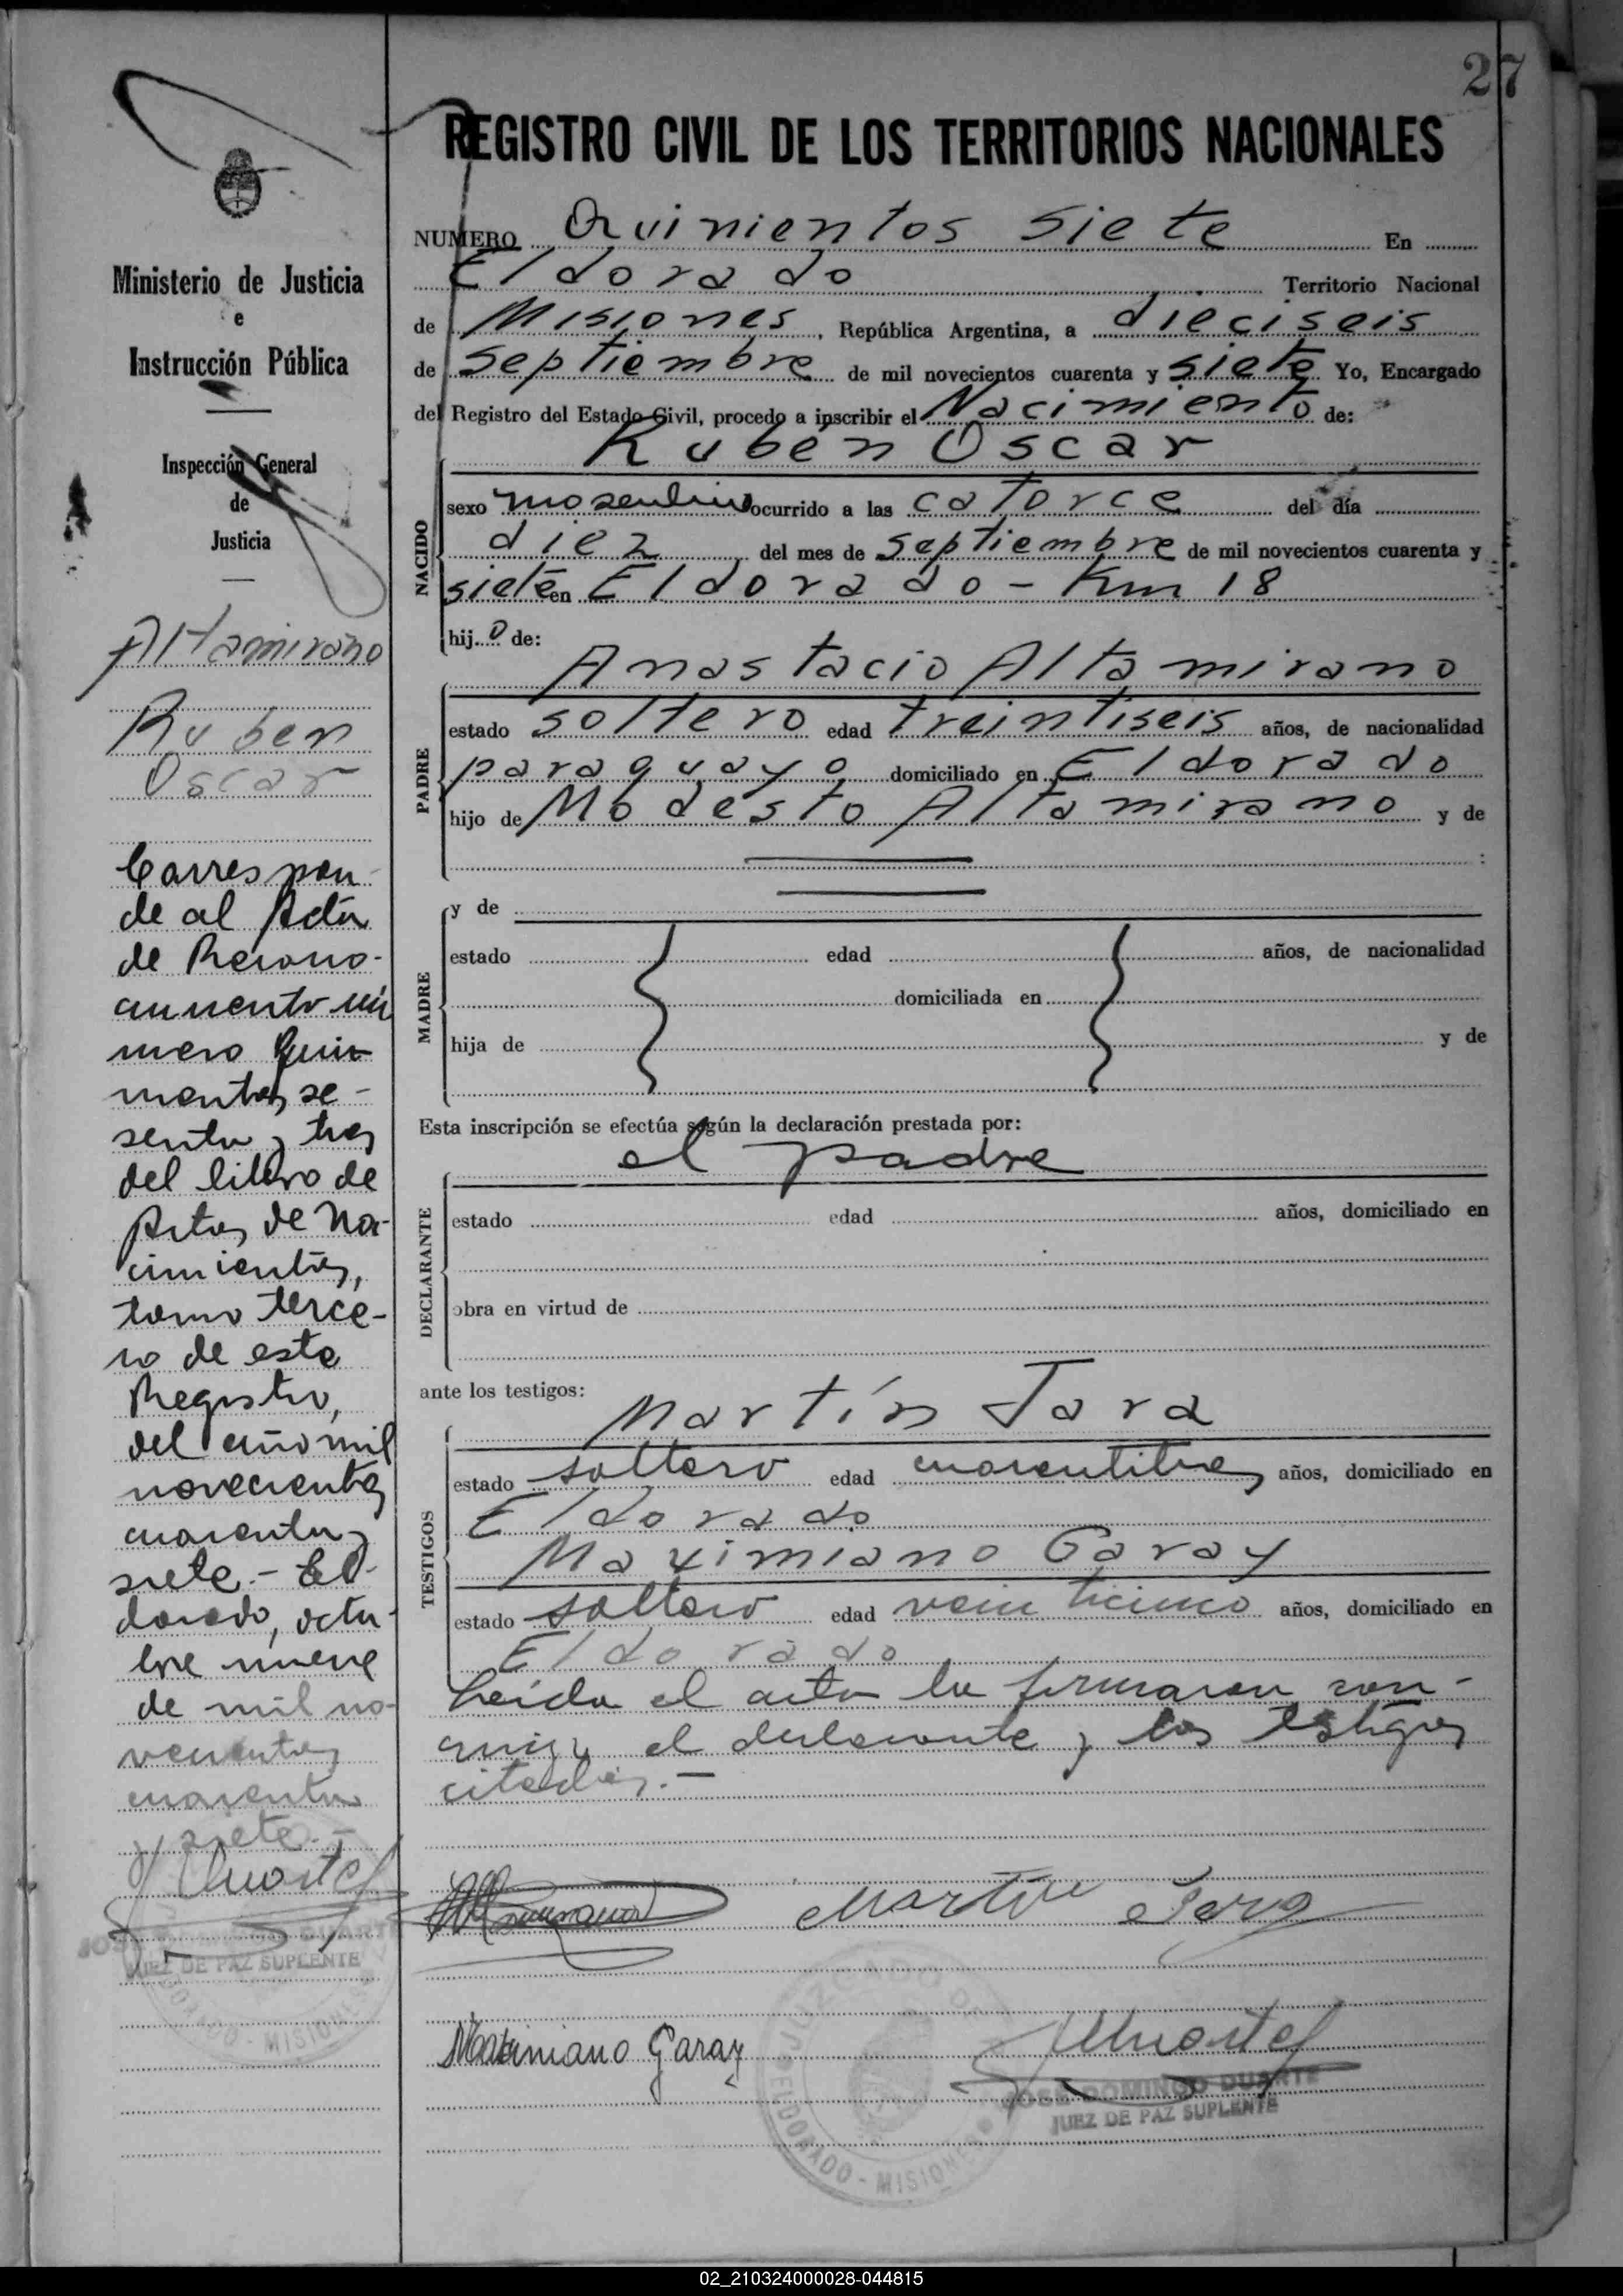 27
REGISTRO CIVIL DE LOS TERRITORIOS NACIONALES
Ministerio de Justicia
e
Instrucción Pública
Inspección General
de
Justicia
Altamirano
Ruben
Oscar
Correspon-
de al Acta
de Recono-
cimiento nú
mero Quin
ientos se-
senta y tres
del libro de
Actas de Na-
cimientos,
tomo terce-
ro de este
Registro,
del año mil
novecientos
cuarenta y
siete.- El-
dorado, octu-
bre nueve
de mil no-
vecientos
cuarenta
y siete.-
JOSE DOMINGO DUARTE
JUEZ DE PAZ SUPLENTE
ELDORADO - MISIONES
NUMERO Quinientos siete En
Eldorado Territorio Nacional
de Misiones, República Argentina, a dieciseis
de septiembre de mil novecientos cuarenta y siete Yo, Encargado
del Registro del Estado Civil, procedo a inscribir el Nacimiento de:
Rubén Oscar
NACIDO
sexo masculino ocurrido a las catorce del día
diez del mes de septiembre de mil novecientos cuarenta y
siete en Eldorado - Km 18
hijo de:
Anastacio Altamirano
PADRE
estado soltero edad treintiseis años, de nacionalidad
paraguayo domiciliado en Eldorado
hijo de Modesto Altamirano y de
MADRE
y de
estado edad años, de nacionalidad
domiciliada en
hija de y de
Esta inscripción se efectúa según la declaración prestada por:
el padre
DECLARANTE
estado edad años, domiciliado en
obra en virtud de
ante los testigos:
Martín Jara
TESTIGOS
estado soltero edad cuarentitres años, domiciliado en
Eldorado
Maximiano Garay
estado soltero edad veinticinco años, domiciliado en
Eldorado
Leída el acta la firmaron con-
migo, el declarante y los testigos
citados.-
Martin Jara
Maximiano Garay
JOSE DOMINGO DUARTE
JUEZ DE PAZ SUPLENTE
JUZGADO DE
ELDORADO - MISIONES
02_210324000028-044815